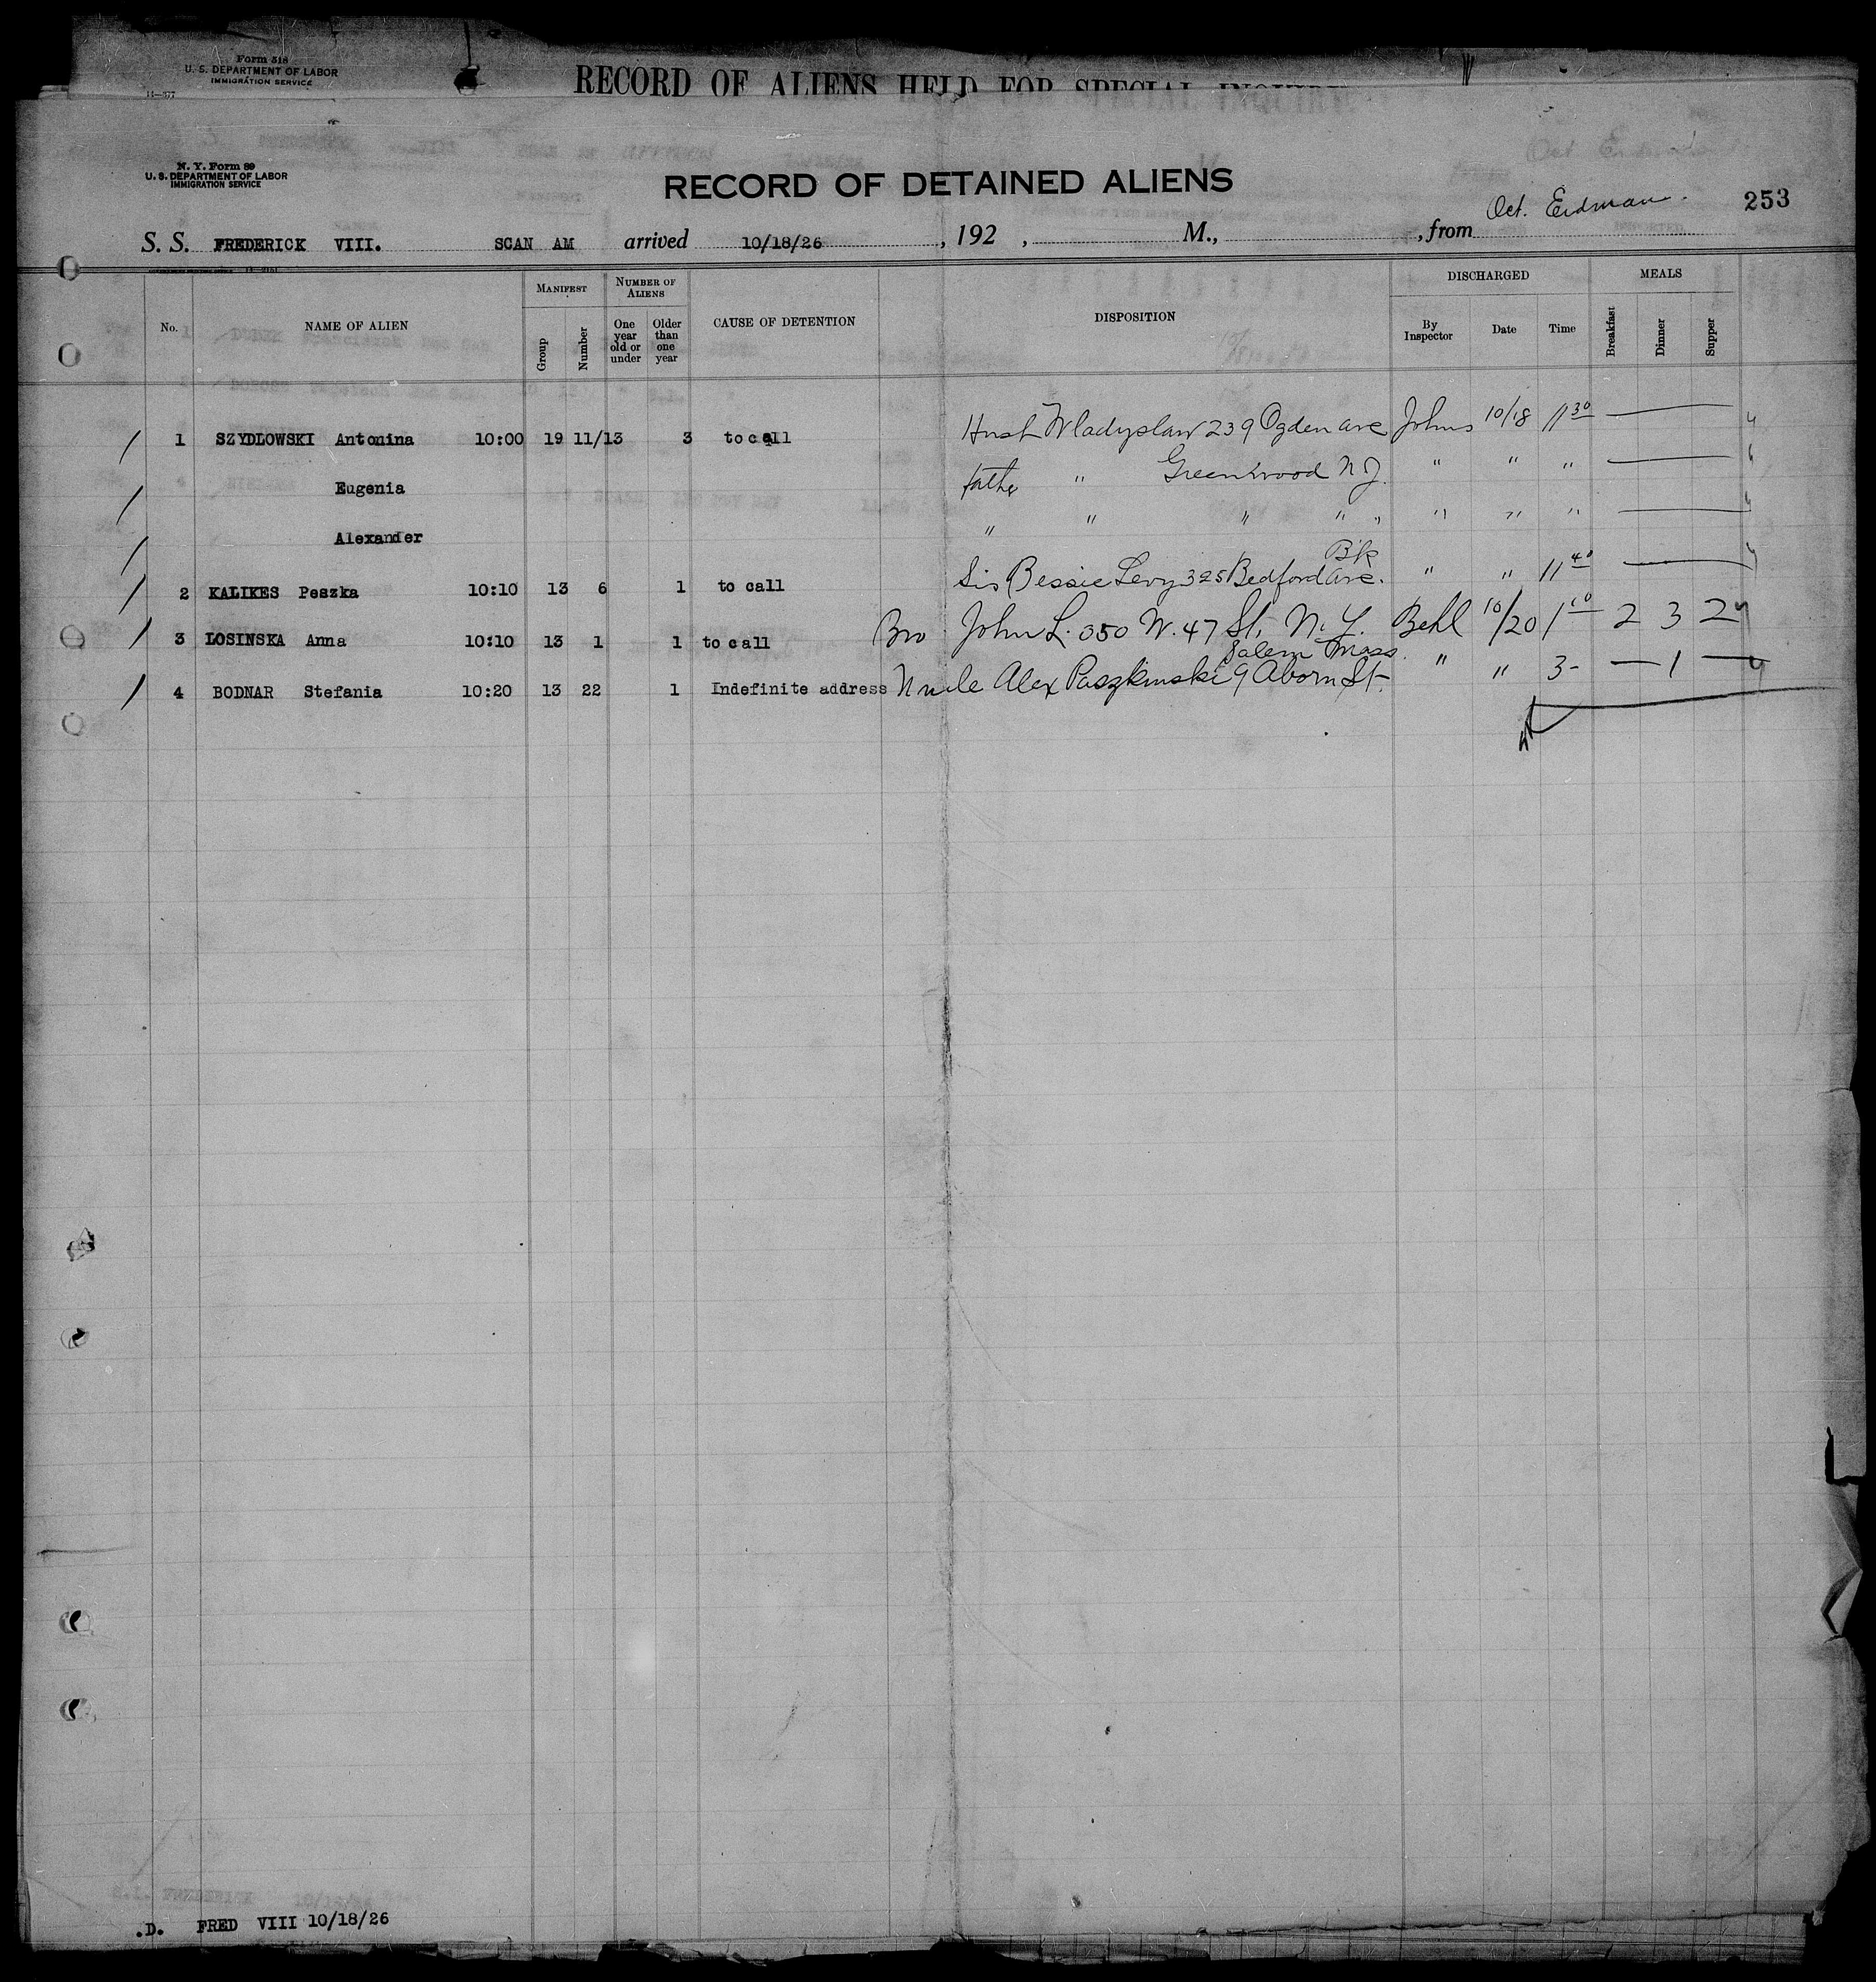 Form 518
U. S. DEPARTMENT OF LABOR
IMMIGRATION SERVICE
14—377
RECORD OF ALIENS HELD FOR SPECIAL INQUIRY
N. Y. Form 89
U. S. DEPARTMENT OF LABOR
IMMIGRATION SERVICE
RECORD OF DETAINED ALIENS
253
S. S. FREDERICK VIII. SCAN AM arrived 10/18/26 , 192 , M., , from Oct. Erdman.
No. NAME OF ALIEN MANIFEST Group Number NUMBER OF ALIENS One year old or under Older than one year CAUSE OF DETENTION DISPOSITION DISCHARGED By Inspector Date Time MEALS Breakfast Dinner Supper
/ 1 SZYDLOWSKI Antonina 10:00 19 11/13 3 to call Husb Wladyslaw 239 Ogden ave Johns 10/18 11 30 —
/ Eugenia father " Greenwood N J. " " " —
/ Alexander " " " " " " " " —
Bk
/ 2 KALIKES Peszka 10:10 13 6 1 to call Sis Bessie Levy 325 Bedford ave. " " 11 40 —
/ 3 LOSINSKA Anna 10:10 13 1 1 to call Bro John L. 350 W. 47 St, N. Y. Behl 10/20 1 10 2 3 2
Salem Mass.
/ 4 BODNAR Stefania 10:20 13 22 1 Indefinite address Uncle Alex Paszkinski 9 Aborn St. " " 3- — 1 —
.D. FRED VIII 10/18/26